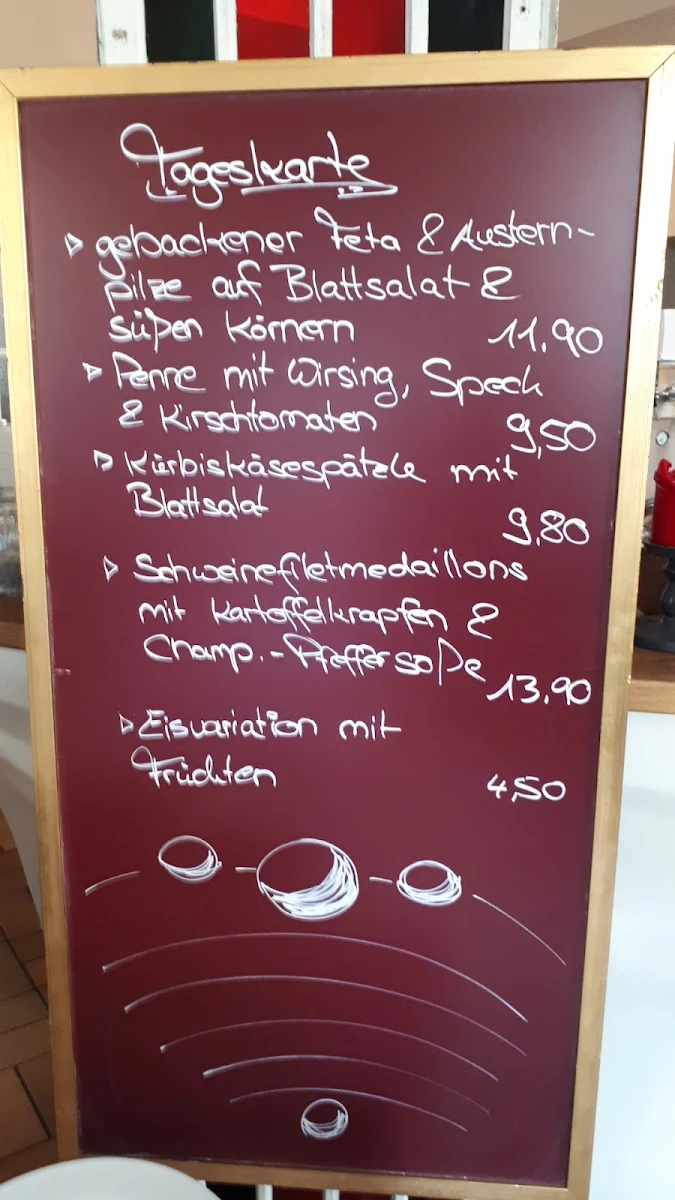 Tageskarte
▹ gebackener Feta & Austern-
pilze auf Blattsalat &
süßen Körnern 11,90
▹ Penne mit Wirsing, Speck
& Kirschtomaten 9,50
▹ Kürbiskäsespätzle mit
Blattsalat 9,80
▹ Schweinefiletmedaillons
mit Kartoffelkrapfen &
Champ.-Pfeffersoße 13,90
▹ Eisvariation mit
Früchten 4,50